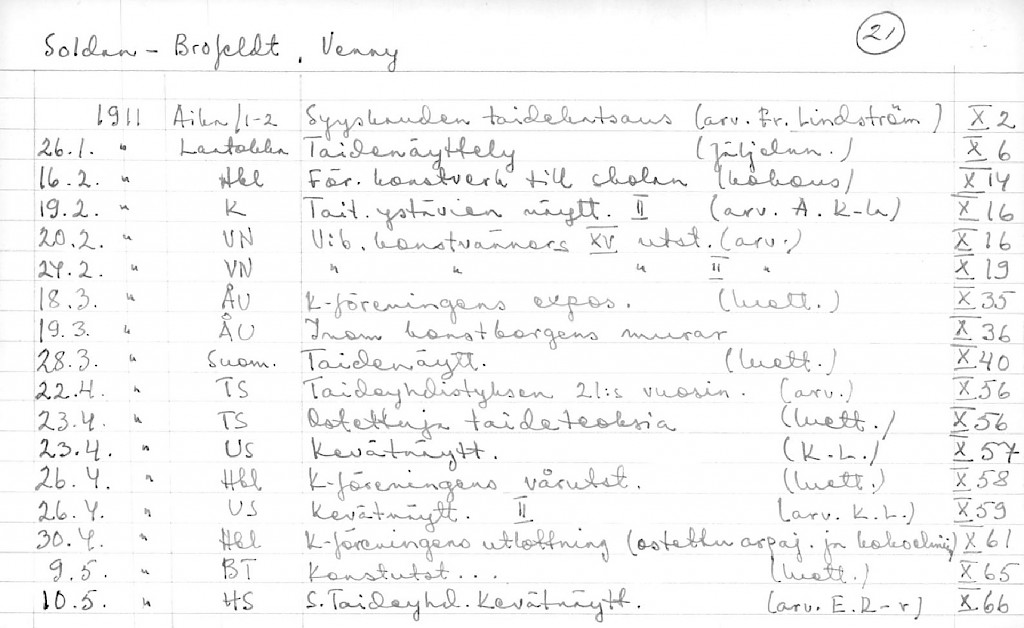 Soldan - Brofeldt, Venny 21
1911 Aika/1-2 Syyskauden taidekatsaus (arv. Fr. Lindström) X 2
26.1. " Laatokka Taidenäyttely (jäljenn.) X 6
16.2. " Hbl För. konstverk till skolan (kokous) X 14
19.2. " K Tait. ystävien näytt. II (arv. A. K-la) X 16
20.2. " VN Vib. konstvänners XV utst. (arv.) X 16
24.2. " VN " " " II " X 19
18.3. " ÅU K-föreningens expos. (luett.) X 35
19.3. " ÅU Inom konstborgens murar X 36
28.3. " Suom. Taidenäytt. (luett.) X 40
22.4. " TS Taideyhdistyksen 21:s vuosin. (arv.) X 56
23.4. " TS Ostettuja taideteoksia (luett.) X 56
23.4. " US Kevätnäytt. (K.L.) X 57
26.4. " Hbl K-föreningens vårutst. (luett.) X 58
26.4. " US Kevätnäytt. II (arv. K.L.) X 59
30.4. " Hbl K-föreningens utlottning (ostettu arpaj. ja kokoelmiin) X 61
9.5. " BT Konstutst... (luett.) X 65
10.5. " HS S. Taideyhd. Kevätnäytt. (arv. E.R-r) X.66